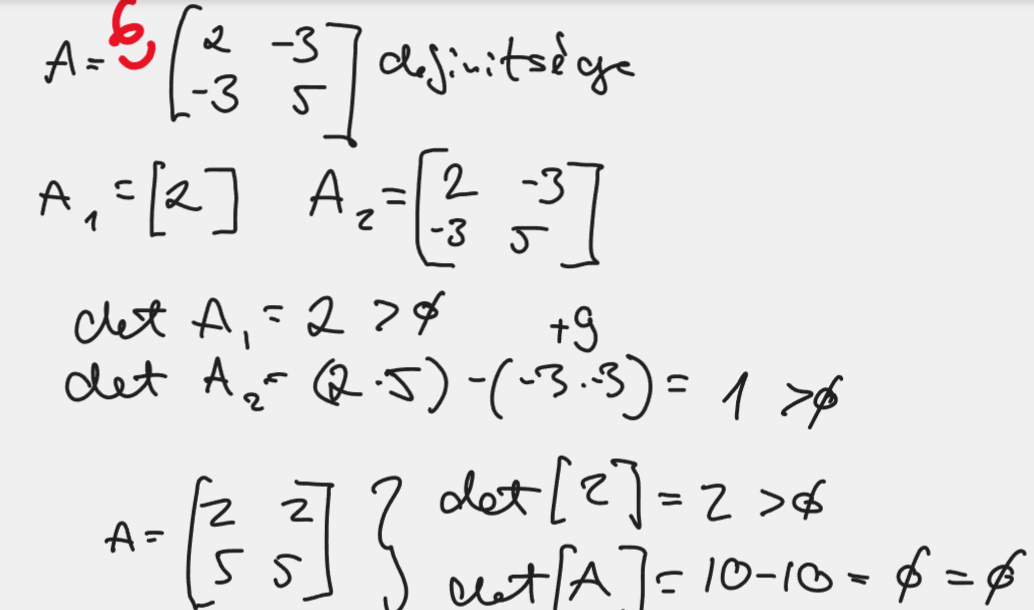 6,
A = [2 -3; -3 5] definitsége
A₁ = [2] A₂ = [2 -3; -3 5]
det A₁ = 2 > ∅ +9
det A₂ = (2·5) - (-3·-3) = 1 > ∅
A = [2 2; 5 5] } det [2] = 2 > ∅
det [A] = 10-10 = ∅ = ∅